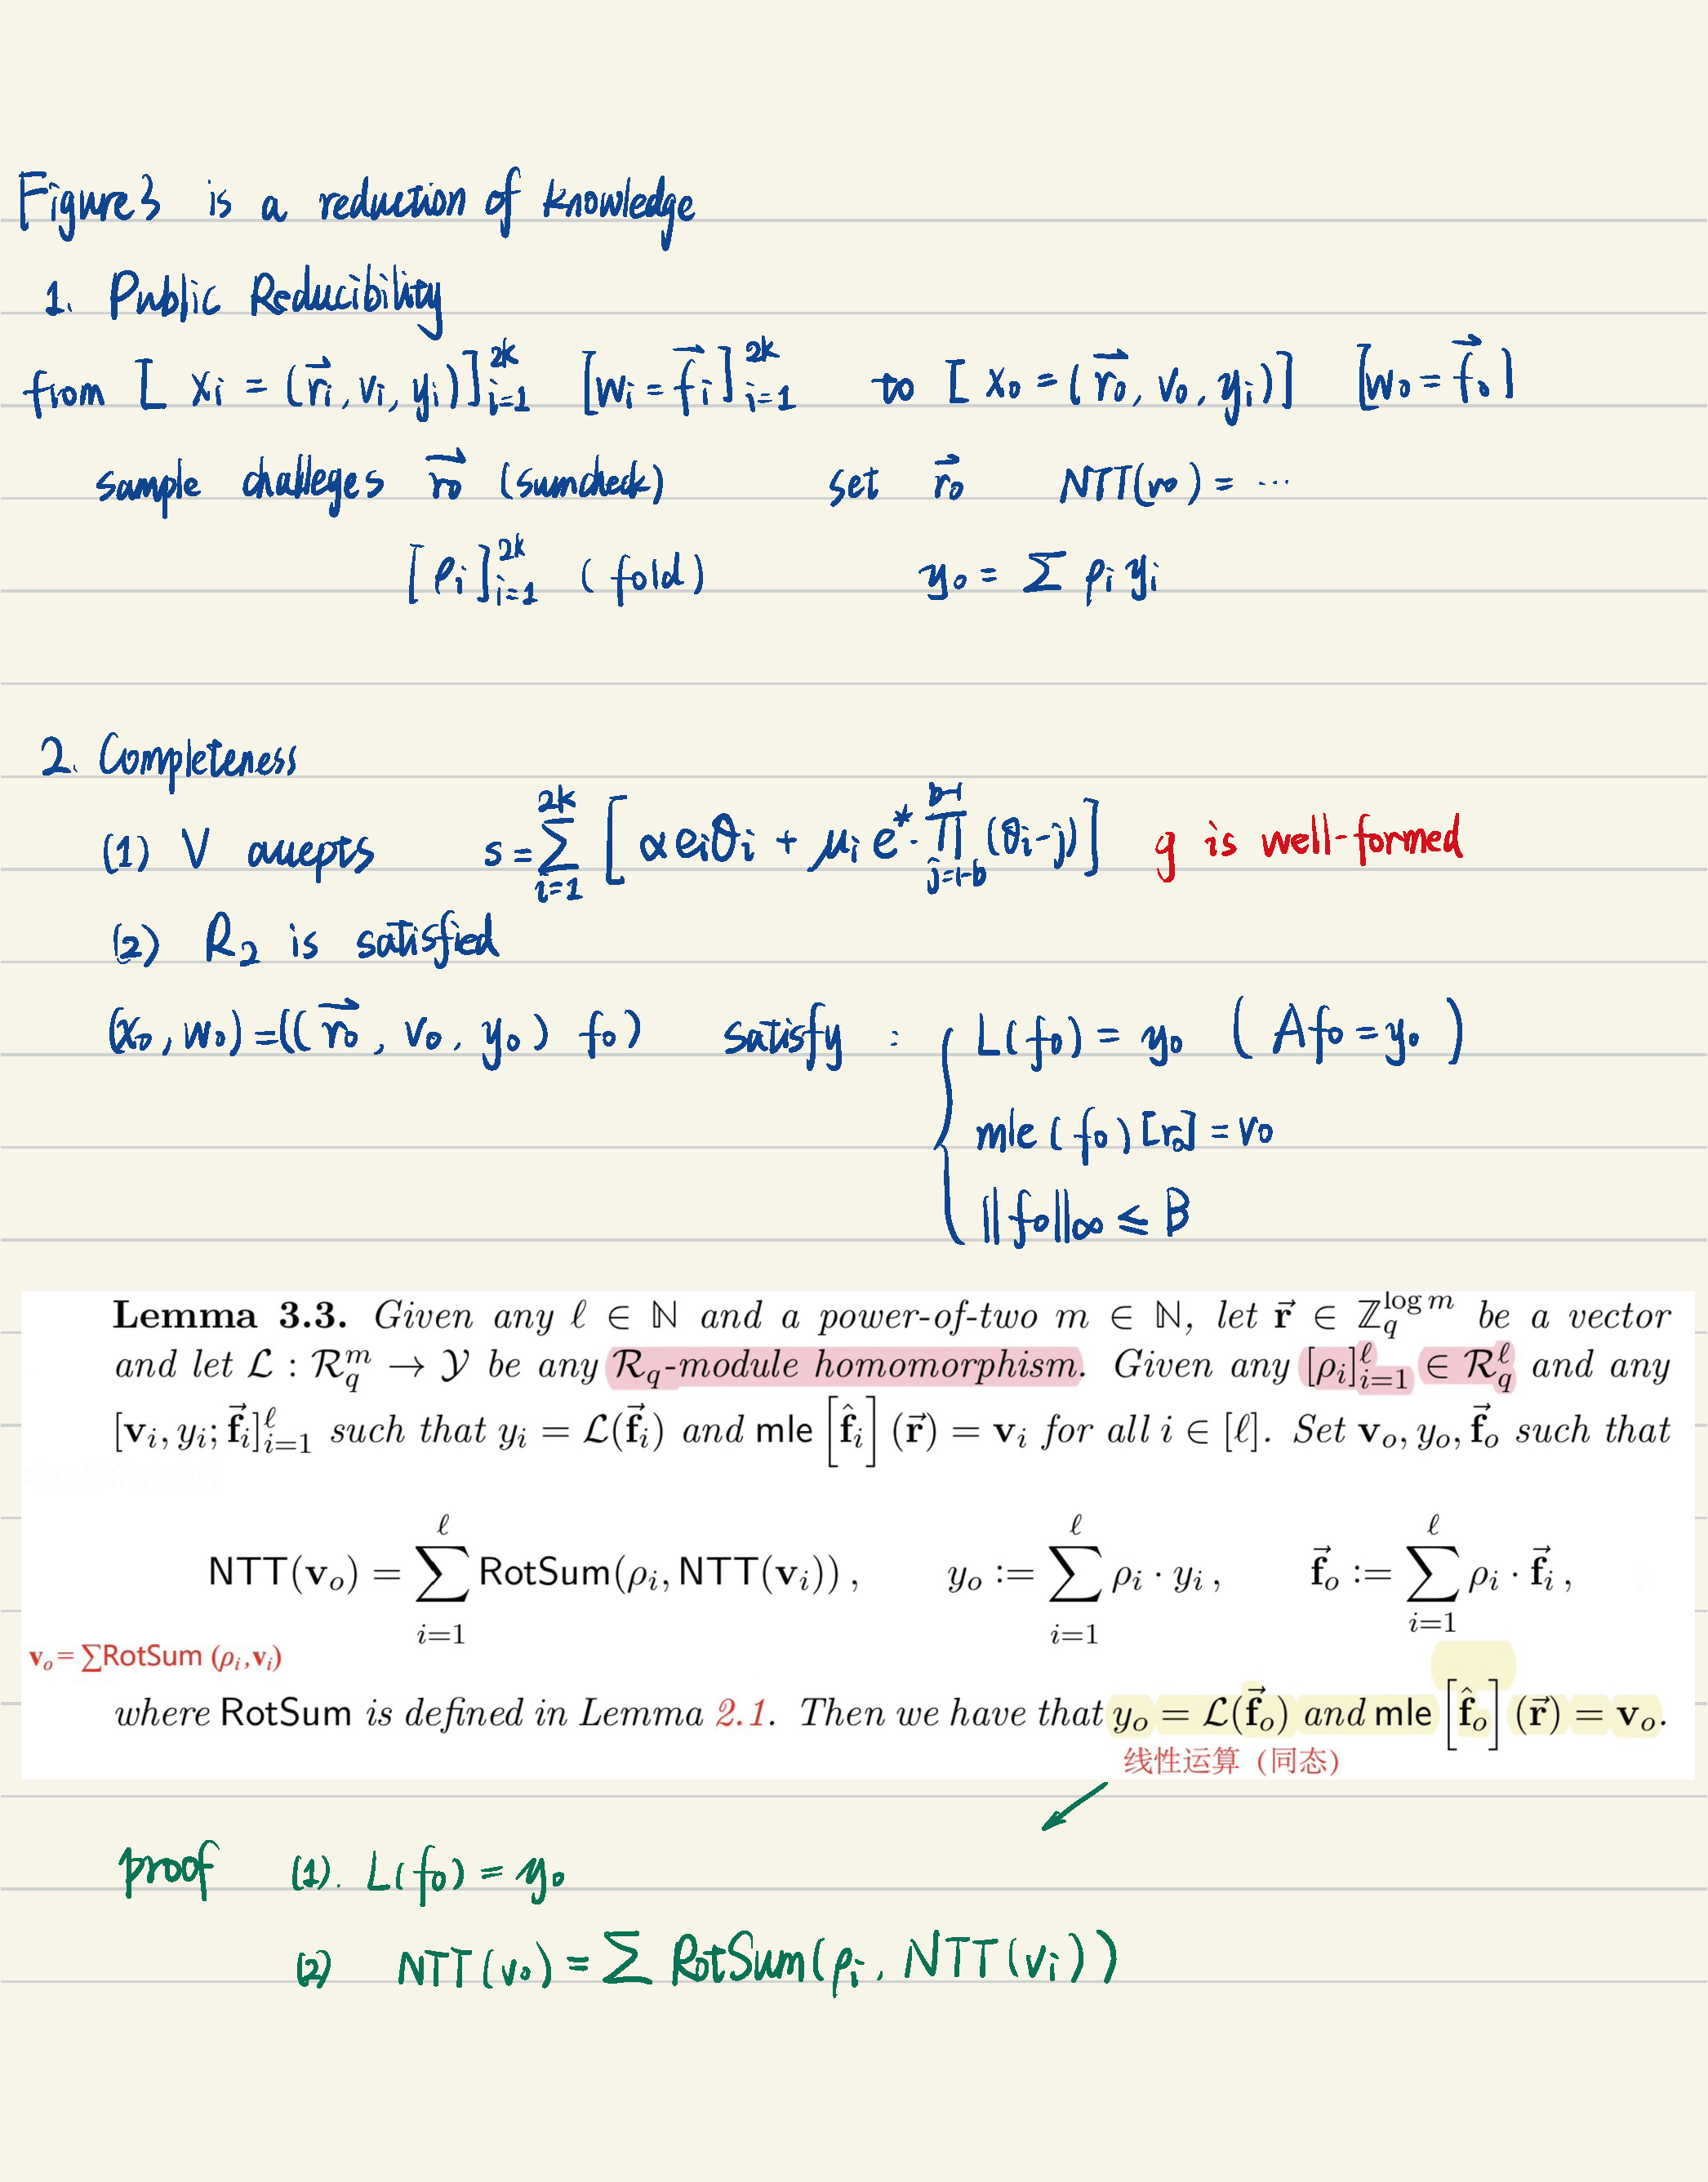 Figure3 is a reduction of knowledge
1. Public Reducibility
from [ xi = (r⃗i, vi, yi)]_{i=1}^{2k} [wi = f⃗i]_{i=1}^{2k} to [ x0 = (r⃗0, v0, yi)] [w0 = f⃗0]
sample challeges r⃗0 (sumcheck) set r⃗0 NTT(v0) = ...
[ρi]_{i=1}^{2k} (fold) y0 = Σ ρi yi
2. Completeness
(1) V accepts s = Σ_{i=1}^{2k} [αeiθi + μi e*·∏_{j=1-b}^{b-1} (θi-j)] g is well-formed
(2) R2 is satisfied
(x0, w0) = ((r⃗0, v0, y0) f0) satisfy : { L(f0) = y0 (Af0 = y0)
mle (f0) [r0] = v0
||f0||∞ ≤ B
Lemma 3.3. Given any ℓ ∈ ℕ and a power-of-two m ∈ ℕ, let r⃗ ∈ ℤ_q^{log m} be a vector
and let ℒ : ℛ_q^m → 𝒴 be any ℛ_q-module homomorphism. Given any [ρ_i]_{i=1}^ℓ ∈ ℛ_q^ℓ and any
[v_i, y_i; f⃗_i]_{i=1}^ℓ such that y_i = ℒ(f⃗_i) and mle [f̂_i] (r⃗) = v_i for all i ∈ [ℓ]. Set v_o, y_o, f⃗_o such that
NTT(v_o) = Σ_{i=1}^ℓ RotSum(ρ_i, NTT(v_i)) , y_o := Σ_{i=1}^ℓ ρ_i · y_i , f⃗_o := Σ_{i=1}^ℓ ρ_i · f⃗_i ,
v_o = ΣRotSum (ρ_i,v_i)
where RotSum is defined in Lemma 2.1. Then we have that y_o = ℒ(f⃗_o) and mle [f̂_o] (r⃗) = v_o.
线性运算（同态）
proof (1). L(f0) = y0
(2) NTT(v0) = Σ RotSum(ρi, NTT(vi))